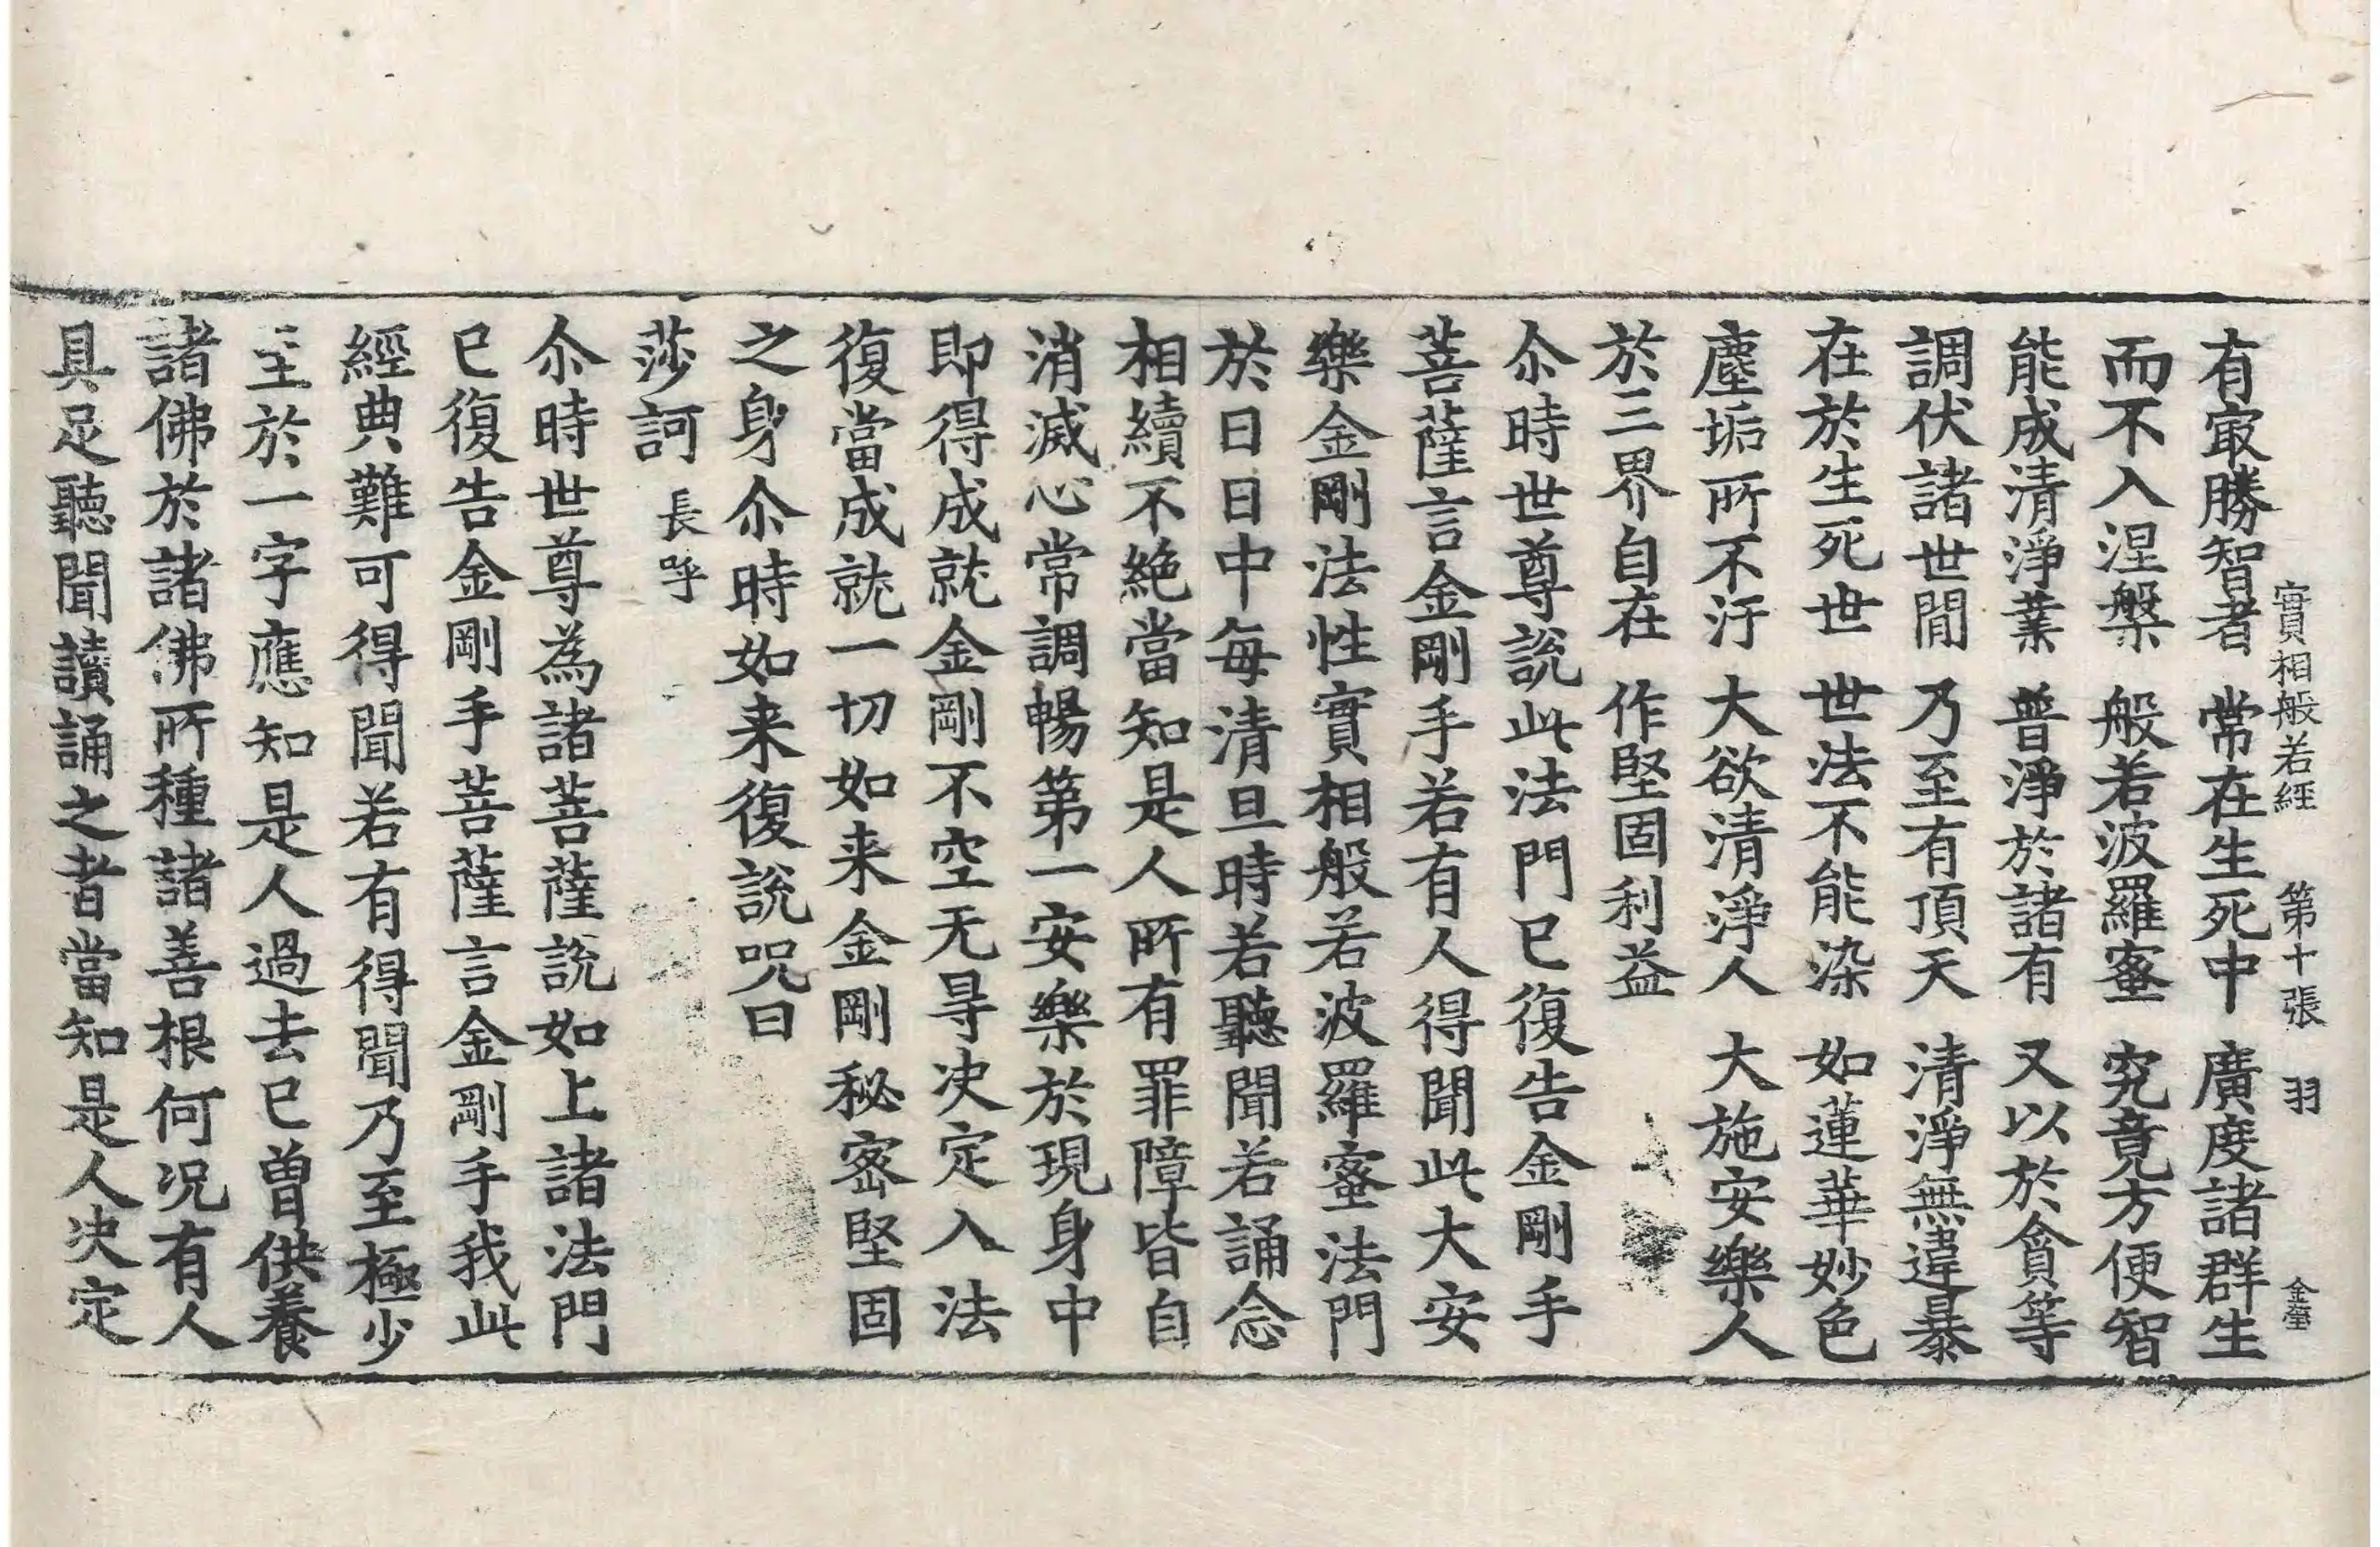 實相般若經 第十張 羽 金瑩
有㝡勝智者 常在生死中 廣度諸群生
而不入涅槃 般若波羅蜜 究竟方便智
能成清淨業 普淨於諸有 又以於貪等
調伏諸世閒 乃至有頂天 清淨無違暴
在於生死世 世法不能染 如蓮華妙色
塵垢所不汙 大欲清淨人 大施安樂人
於三界自在 作堅固利益
尒時世尊說此法門已復告金剛手
菩薩言金剛手若有人得聞此大安
樂金剛法性實相般若波羅蜜法門
於日日中每清旦時若聽聞若誦念
相續不絶當知是人所有罪障皆自
消滅心常調暢第一安樂於現身中
即得成就金剛不空无㝵决定入法
復當成就一切如来金剛秘密堅固
之身尒時如来復說呪曰
莎訶 長呼
尒時世尊為諸菩薩說如上諸法門
已復告金剛手菩薩言金剛手我此
經典難可得聞若有得聞乃至極少
至於一字應知是人過去已曽供養
諸佛於諸佛所種諸善根何况有人
具足聽聞讀誦之者當知是人决定